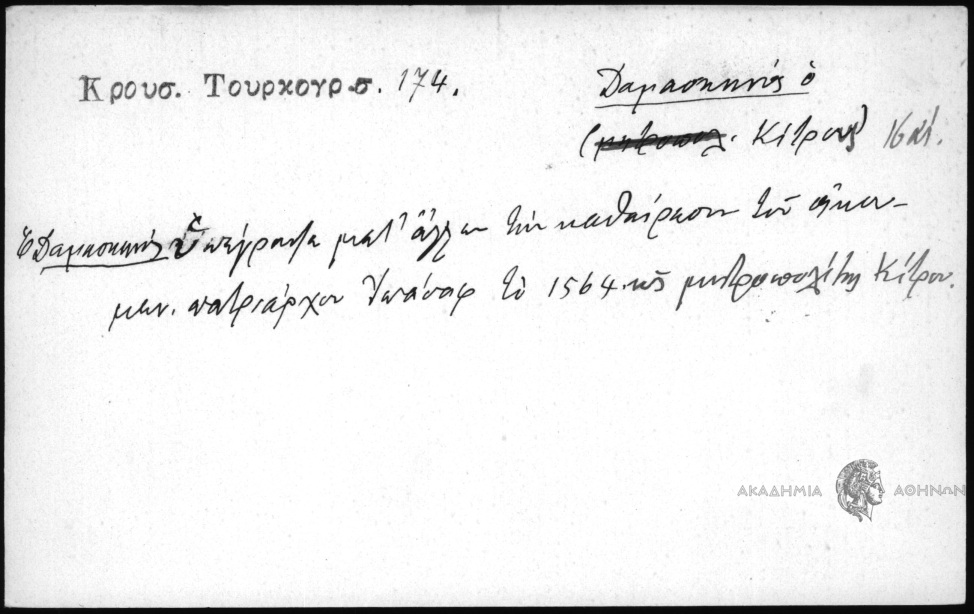 Κρουσ. Τουρκογρ.σ. 174.
Δαμασκηνός ὁ
(μητροπολ. Κίτρους) 16 αἰ.
Ὁ Δαμασκηνός ὑπέγραψε μετ' ἄλλων τὴν καθαίρεσιν τοῦ οἰκου-
μεν. πατριάρχου Ἰωάσαφ τὸ 1564 ὡς μητροπολίτης Κίτρου.
ΑΚΑΔΗΜΙΑ ΑΘΗΝΩΝ